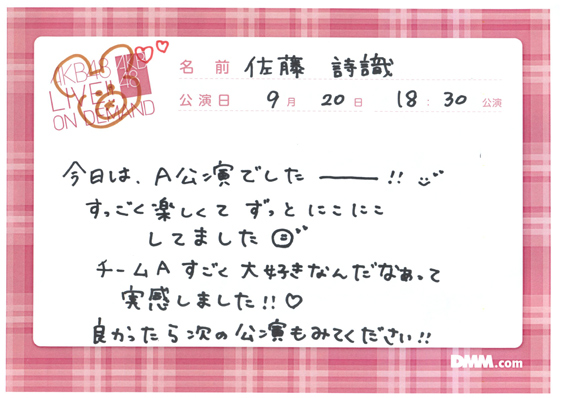 AKB48
LIVE!!
ON DEMAND
AKB
48
名前 佐藤 詩識
公演日 9月 20日 18:30 公演
今日は、A公演でした ―――!!
すっごく楽しくて ずっと にこにこ
してました
チームA すごく 大好きなんだなぁって
実感しました!!♡
良かったら次の公演もみてください!!
DMM.com